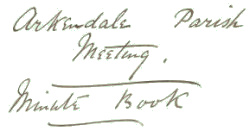 Arkendale Parish
Meeting.
Minute Book